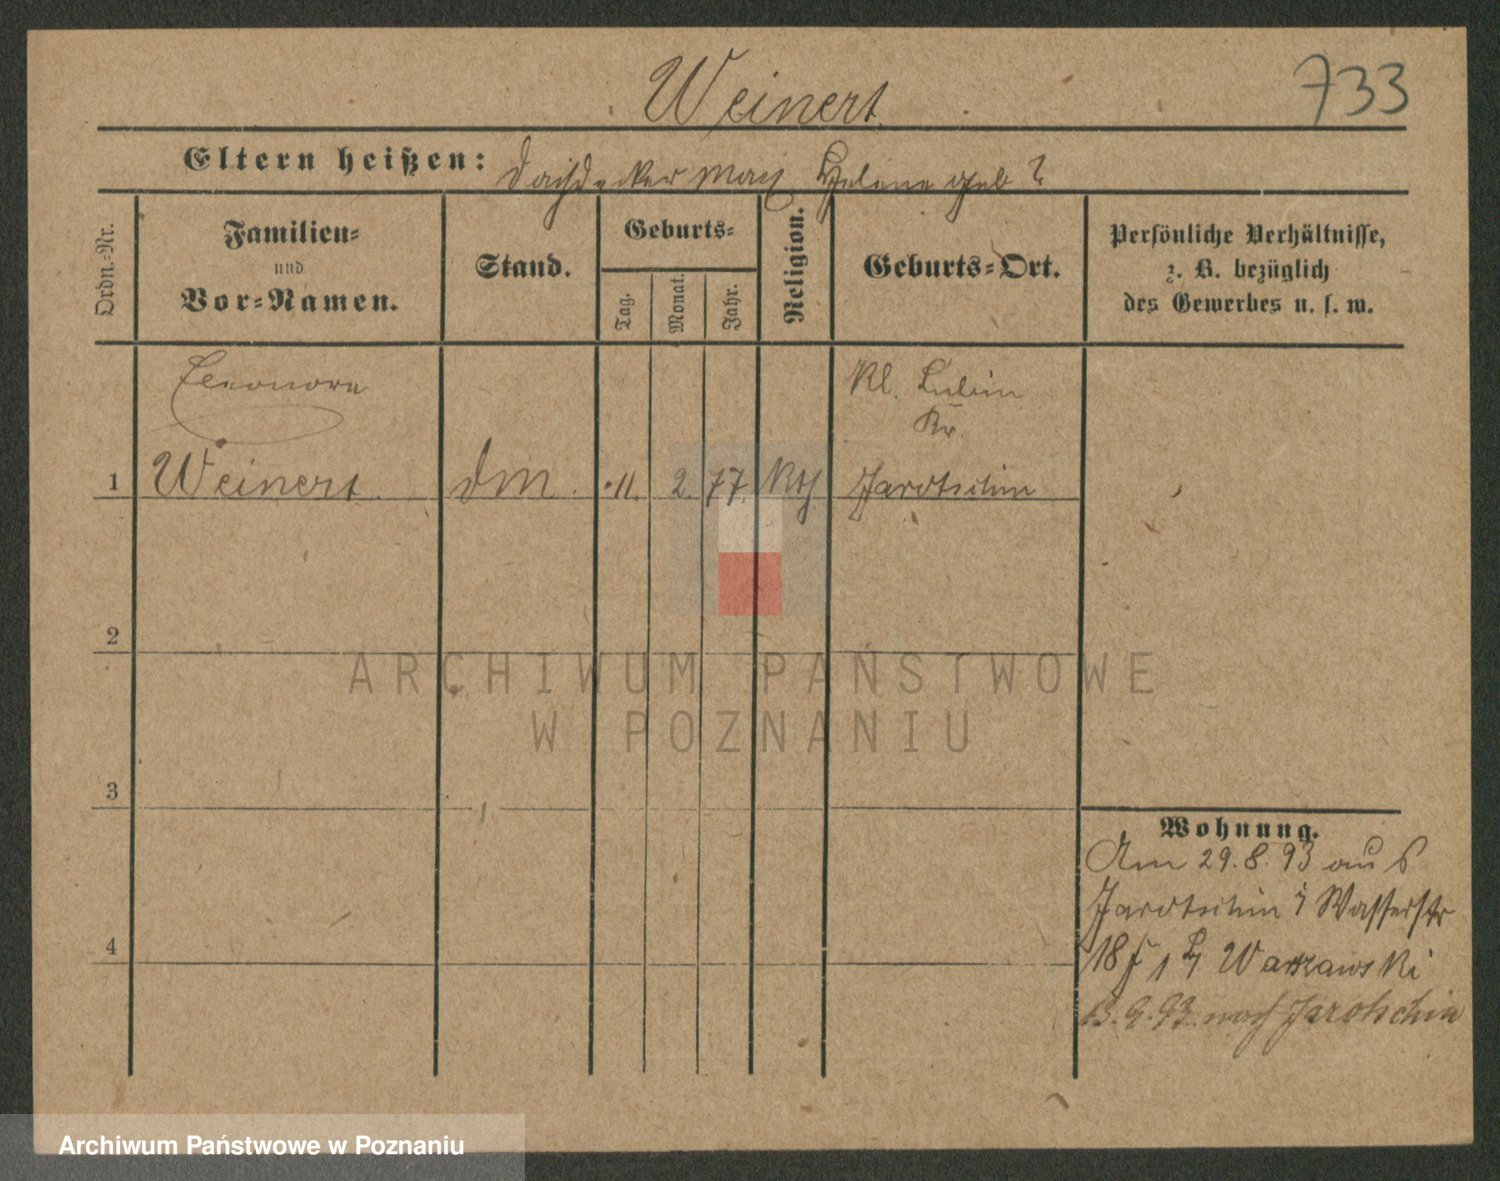 Weinert
733
Eltern heißen: Dachdecker Max Helene geb ?
Ordn.-Nr.
Familien-
und
Vor-Namen.
Stand.
Geburts-
Tag.
Monat.
Jahr.
Religion.
Geburts-Ort.
Persönliche Verhältnisse,
z. B. bezüglich
des Gewerbes u. s. w.
Eleonore
Kl. Lubin
Kr.
1 Weinert DM. 11. 2. 77. Kth Jarotschin
2
3
4
Wohnung.
Am 29.8.93 aus
Jarotschin Wasserstr
18 Warszawski
13.9.93 nach Jarotschin
ARCHIWUM PAŃSTWOWE
W POZNANIU
Archiwum Państwowe w Poznaniu